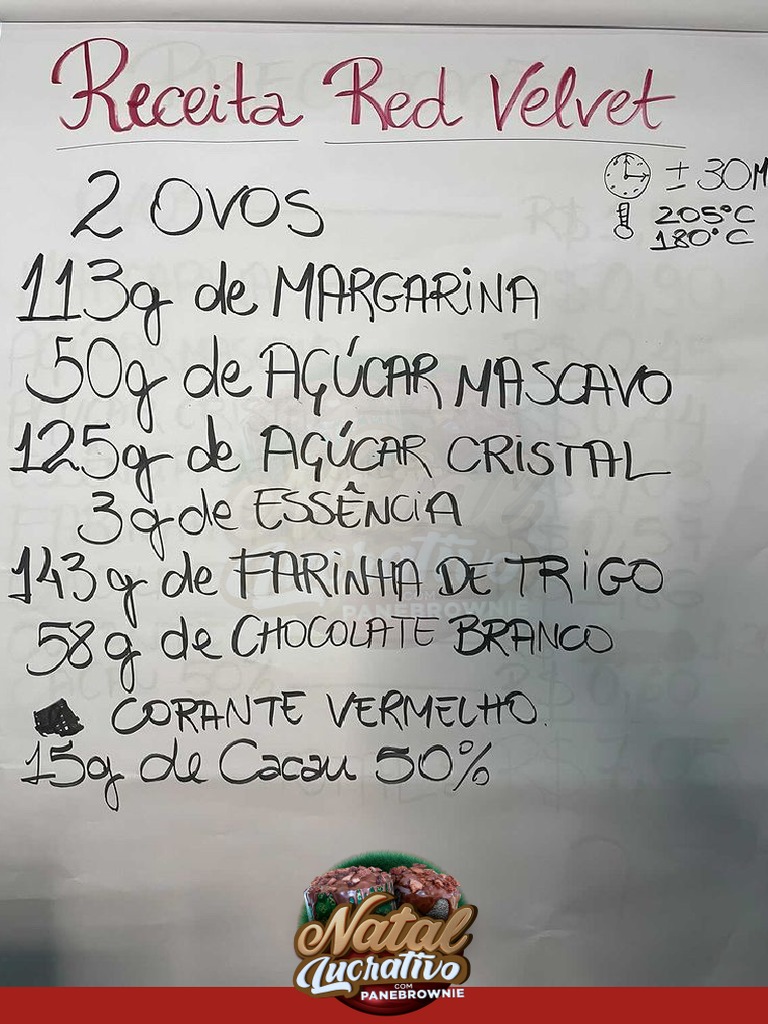 Receita Red Velvet
± 30M
205°C
180°C
2 OVOS
113g de MARGARINA
50g de AÇÚCAR MASCAVO
125g de AÇÚCAR CRISTAL
3g de ESSÊNCIA
143g de FARINHA DE TRIGO
58g de CHOCOLATE BRANCO
CORANTE VERMELHO.
15g de Cacau 50%
Natal
Lucrativo
COM
PANEBROWNIE